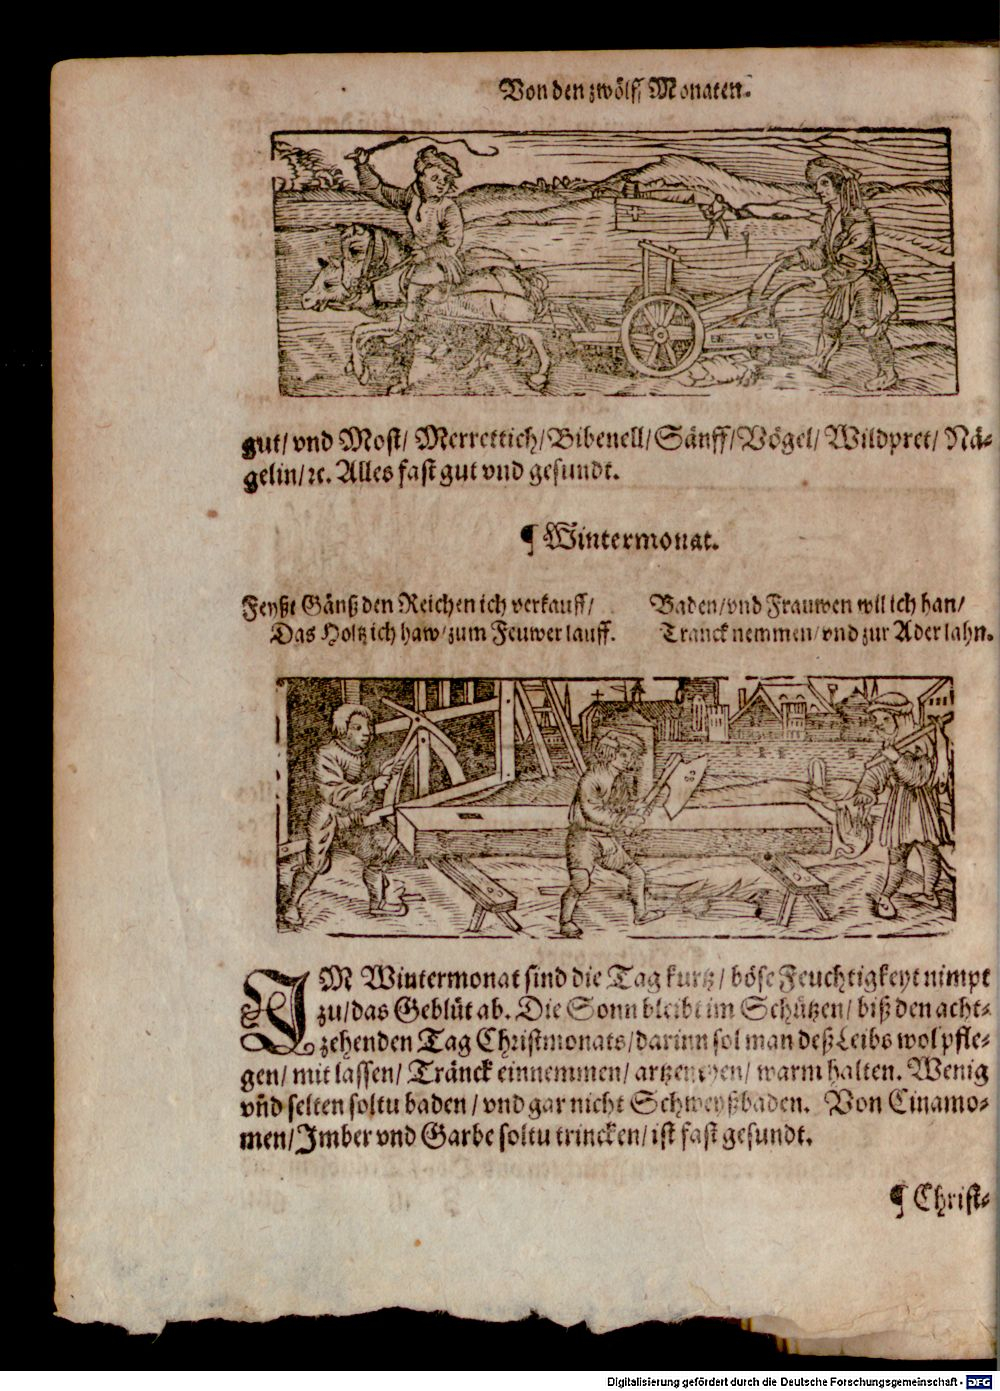 Von den zwölff Monaten.
gut/ vnd Most/ Merrettich/ Bibenell/ Sänff/ Vögel/ Wildpret/ Nä-
gelin/ ꝛc. Alles fast gut vnd gesundt.
¶ Wintermonat.
Feyßt Gänß den Reichen ich verkauff/
Das Holtz ich haw/ zum Feuwer lauff.
Baden/ vnd Frauwen wil ich han/
Tranck nemmen/ vnd zur Ader lahn.
IM Wintermonat sind die Tag kurtz/ böse Feuchtigkeyt nimpt
zu/ das Geblüt ab. Die Sonn bleibt im Schützen/ biß den acht-
zehenden Tag Christmonats/ darinn sol man deß Leibs wol pfle-
gen/ mit lassen/ Tränck einnemmen/ artzeneyen/ warm halten. Wenig
vñ selten soltu baden/ vnd gar nicht Schweyßbaden. Von Cinamo-
men/ Imber vnd Garbe soltu trincken/ ist fast gesundt.
¶ Christ-
Digitalisierung gefördert durch die Deutsche Forschungsgemeinschaft - DFG